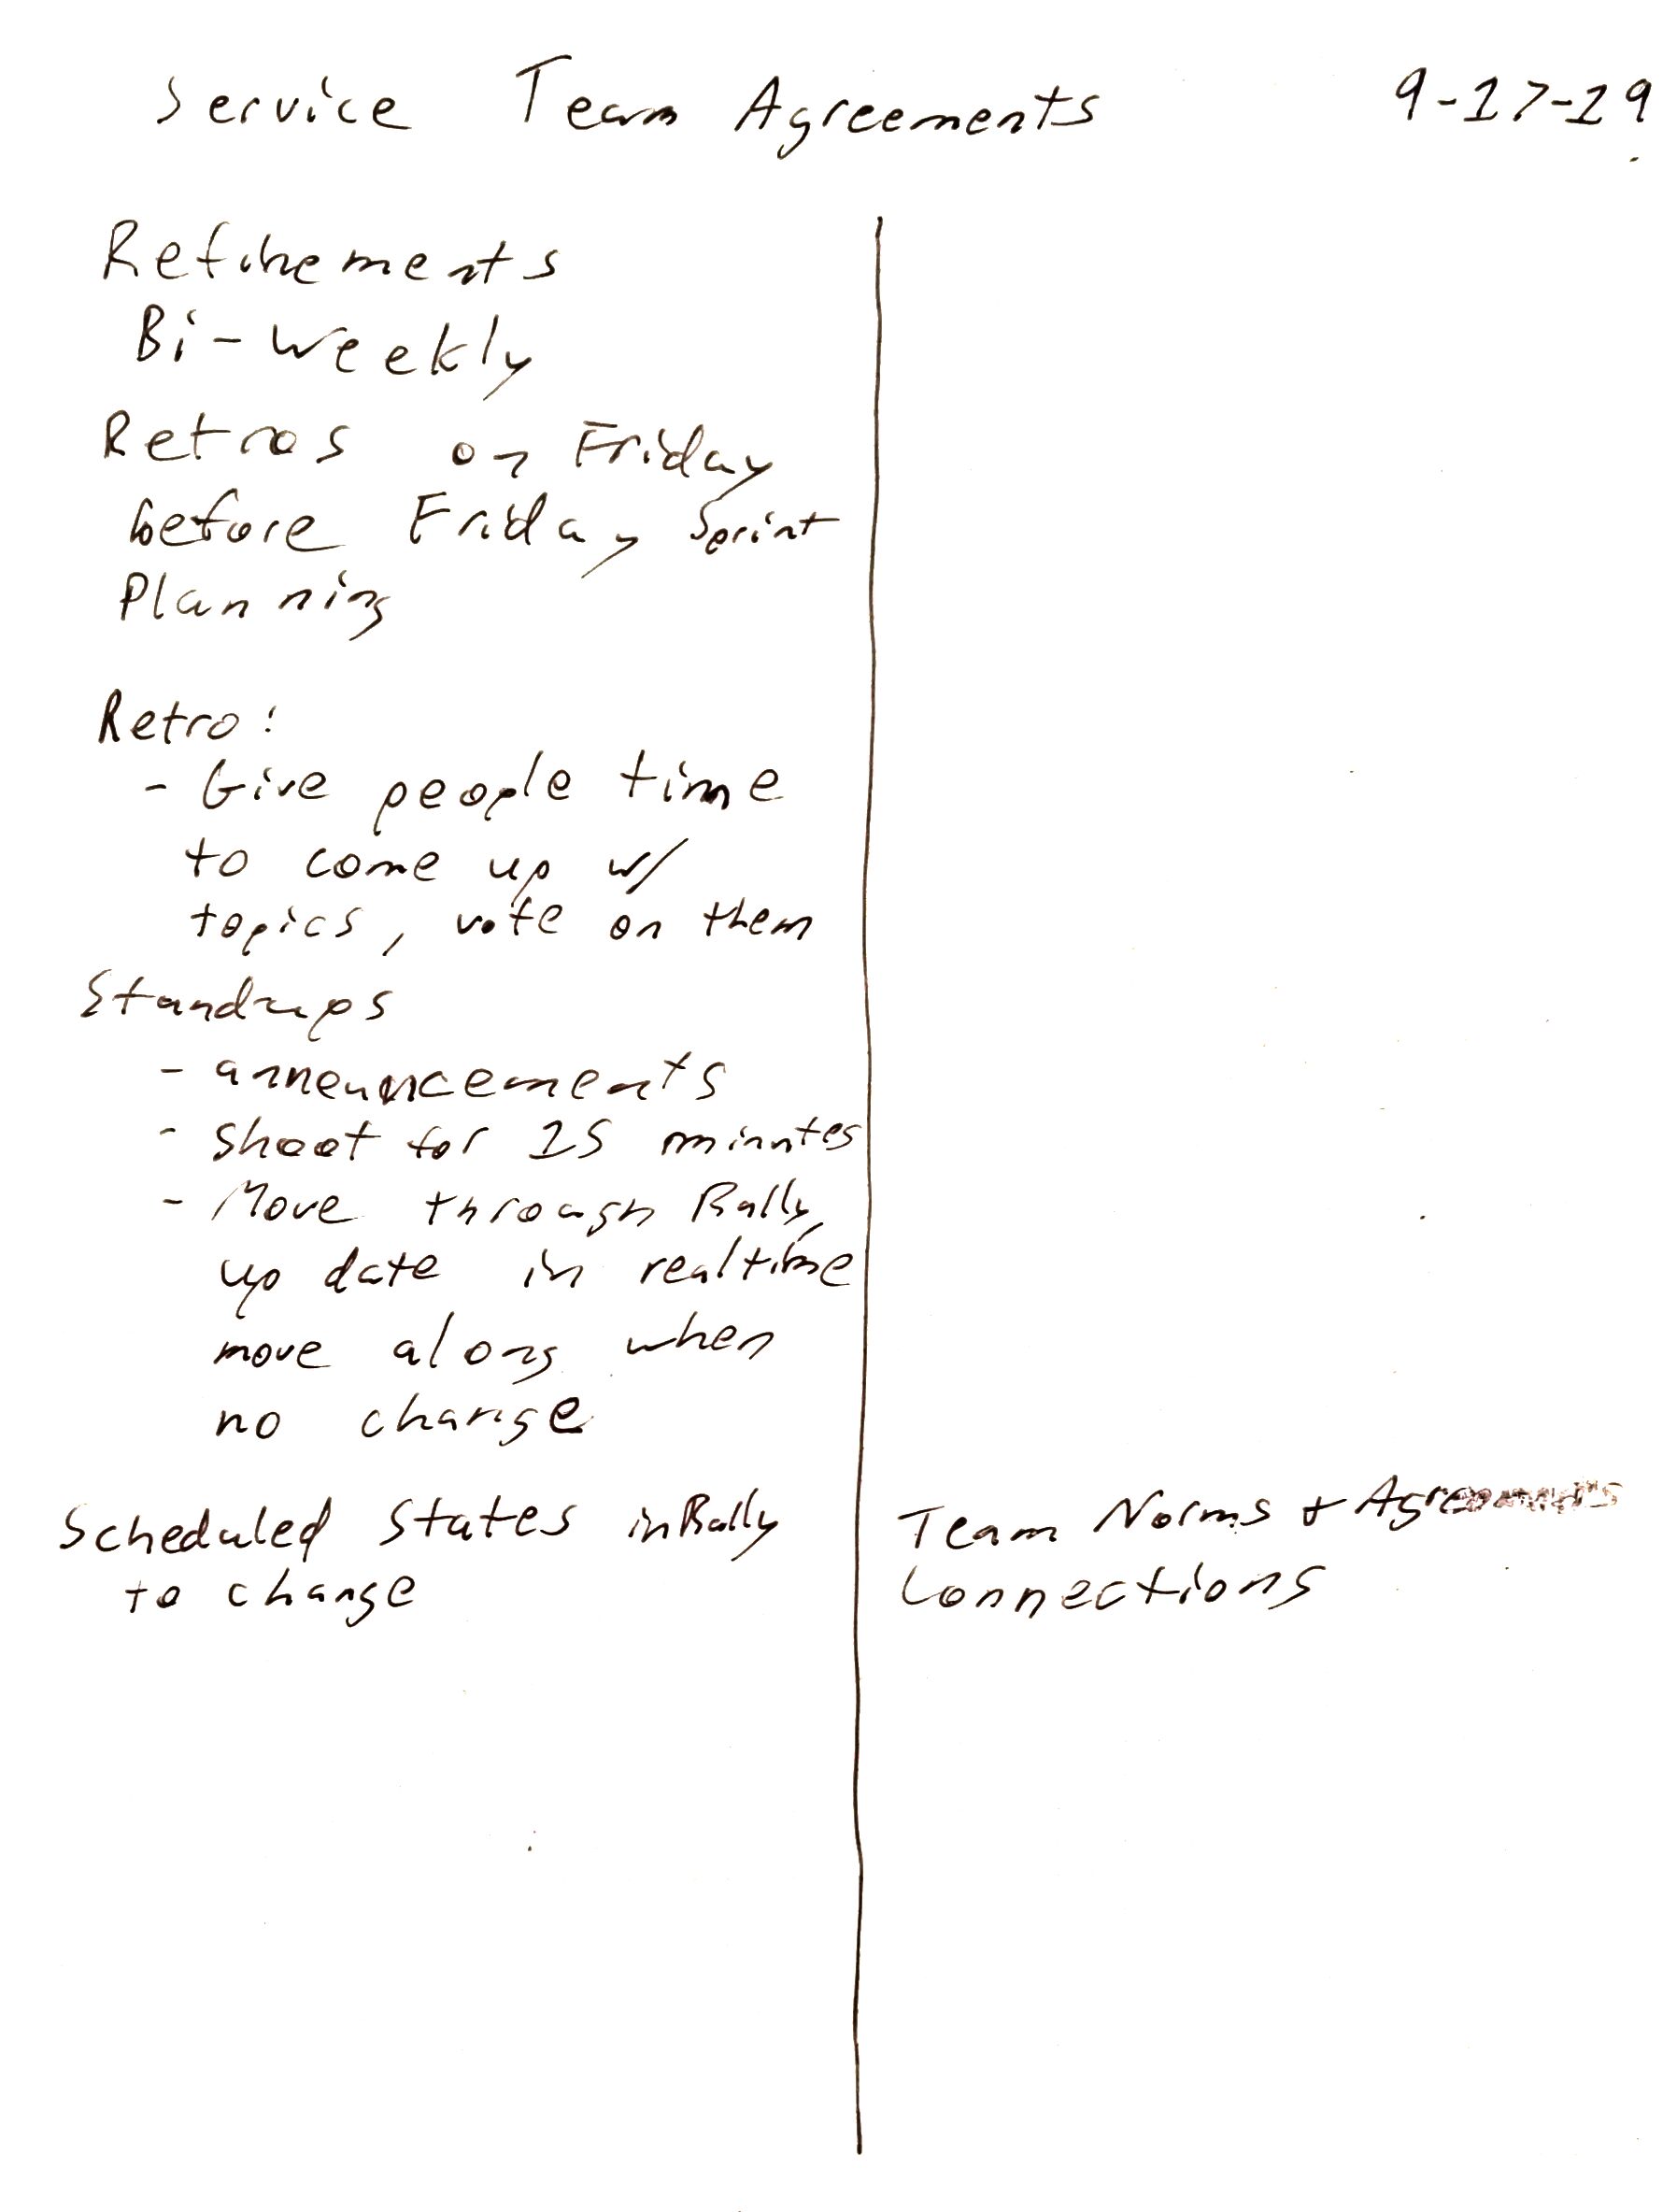 Service Team Agreements 9-17-19
Refinements
Bi-weekly
Retros on Friday
before Friday Sprint
Planning
Retro:
- Give people time
to come up w/
topics, vote on them
Standups
- announcements
- shoot for 15 minutes
- Move through Rally,
up date in realtime
move along when
no change
Scheduled States in Rally
to change
Team Norms + Agreements
Connections